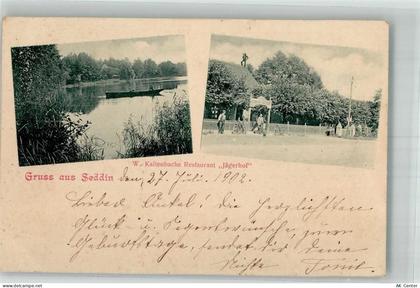 W. Kaltenbachs Restaurant „Jägerhof“
Gruss aus Seddin den 27. Juli 1902.
Lieber Onkel! die herzlichsten
Glück- u. Segenswünsche, zum
Geburtstage, sendet dir deine
Nichte
www.delcampe.net
AK Center